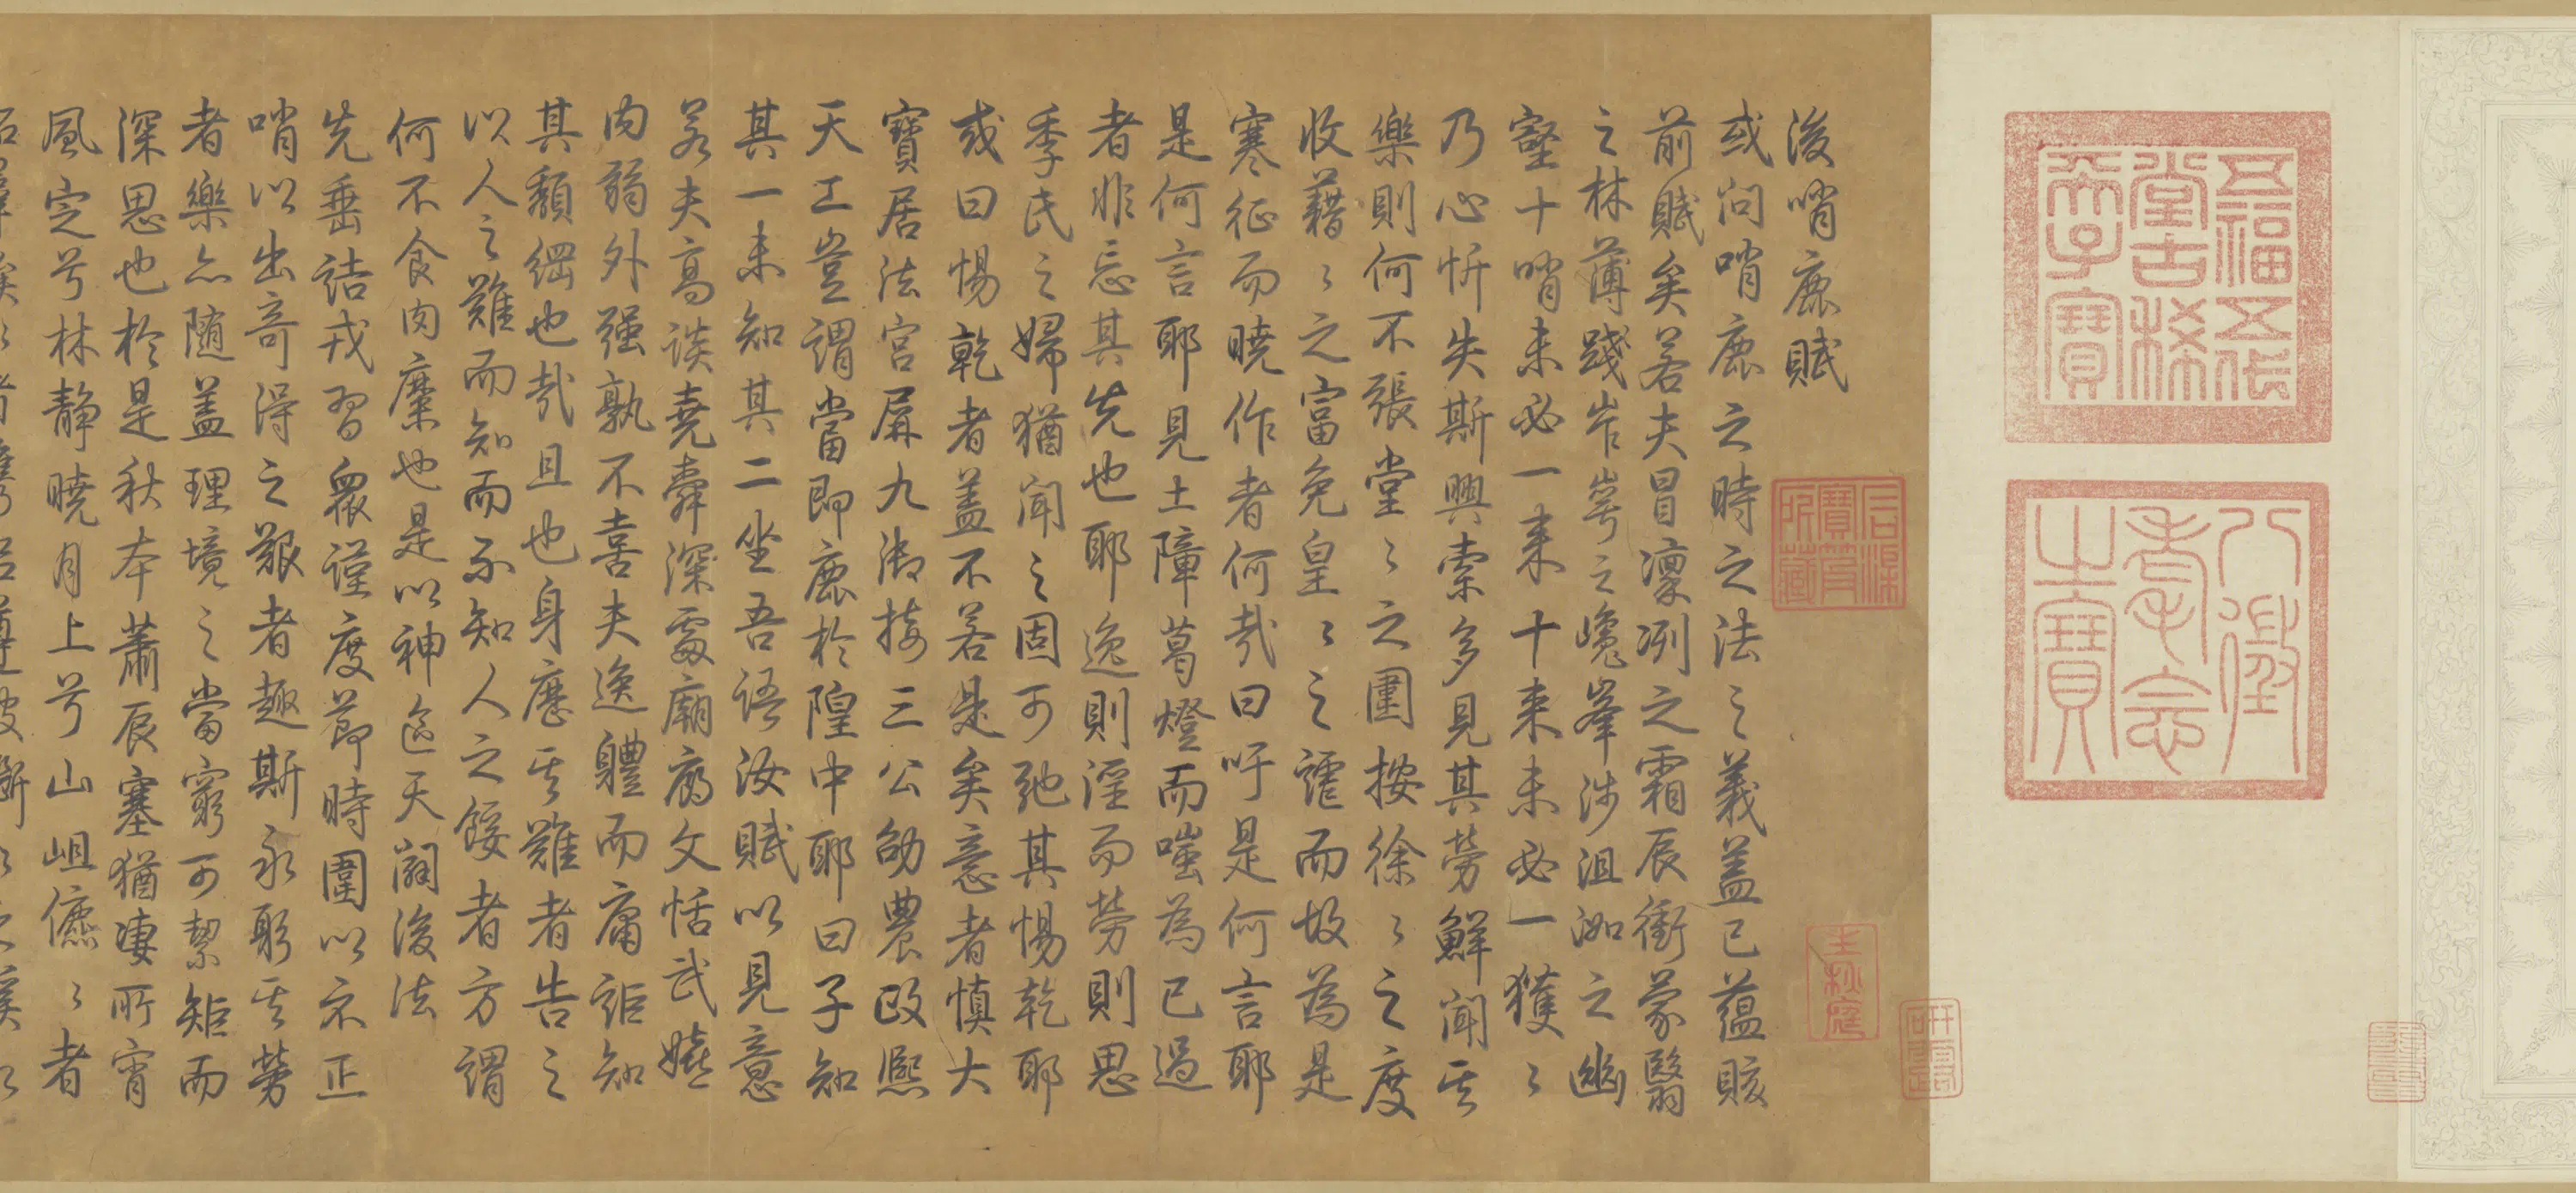 五福五代
堂古稀
天子寶
八徵
耄念
之寶
石渠
寶笈
所藏
後哨鹿賦
或問哨鹿之時之法之義蓋已蘊賅
前賦矣若夫冒凜冽之霜辰衝蒙翳
之林薄踐岝崿之巉峯涉沮洳之幽
壑十哨未必一來十來未必一獲獲
乃心忻失斯興索多見其勞鮮聞其
樂則何不張堂堂之圍按徐徐之度
收藉藉之富免皇皇之謔而故為是
寒征而曉作者何哉曰吁是何言耶
是何言耶見土障葛燈而嗤為已過
者非忘其先也耶逸則淫而勞則思
季氏之婦猶聞之固可弛其惕乾耶
或曰惕乾者蓋不若是矣意者慎大
寶居法宮屏九御接三公劭農政熙
天工豈謂當即鹿於隍中耶曰子知
其一未知其二坐吾語汝賦以見意
若夫高談堯舜深處廟廊文恬武嬉
內弱外強孰不喜夫逸體而庸詎知
其頹綱也哉且也身歷其難者告之
以人之難而知而不知人之餒者方謂
何不食肉糜也是以神堯天闢後法
先垂詰戎習眾謹度節時圍以示正
哨以出奇得之艱者趣斯永躬其勞
者樂亦隨蓋理境之當窮可絜矩而
深思也於是秋本蕭辰塞猶凄所宵
風定兮林靜曉月上兮山岨儦儦者